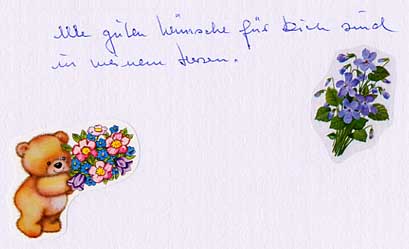 Alle guten Wünsche für Dich sind
in meinem Herzen.